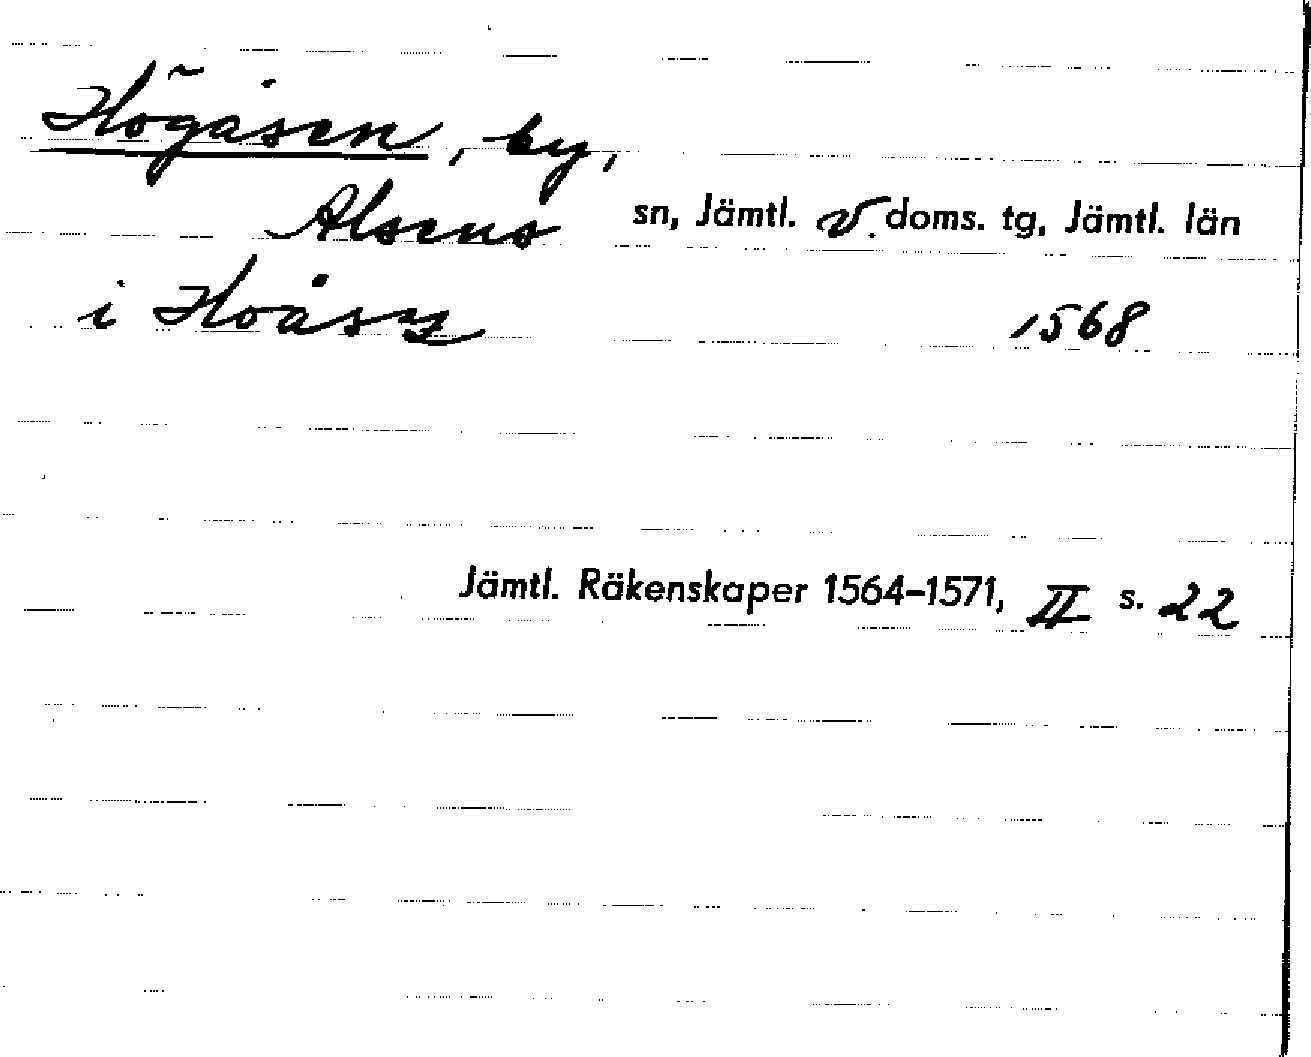 Högåsen, by,
Alsens sn, Jämtl. v. doms. tg, Jämtl. län
i Hoåsz 1568
Jämtl. Räkenskaper 1564-1571, II s. 22